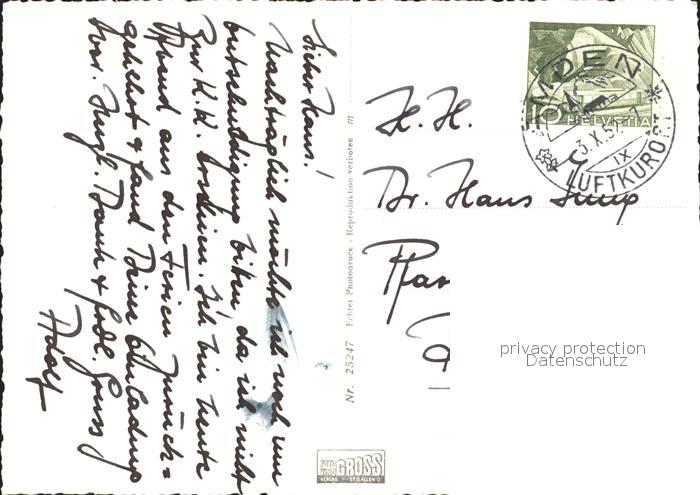 Lieber Hans!
Nachträglich möchte ich noch um
Entschuldigung bitten, da ich nicht
zur K.K. erschien. Ich bin heute
Abend aus den Ferien zurück=
gekehrt & fand Deine Einladung
vor. Herzl. Dank & frdl. Gruss
Adolf
Nr. 25247 Echter Photodruck - Reproduktion verboten m
GROSS
ST. GALLEN
HELVETIA
AMDEN
3.X.52
IX
LUFTKURORT
H. H.
Dr. Hans
Pfar
privacy protection
Datenschutz